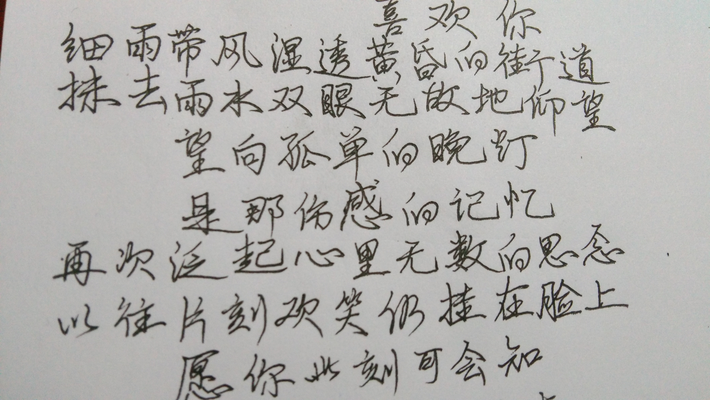 喜欢你
细雨带风湿透黄昏的街道
抹去雨水双眼无故地仰望
望向孤单的晚灯
是那伤感的记忆
再次泛起心里无数的思念
以往片刻欢笑仍挂在脸上
愿你此刻可会知